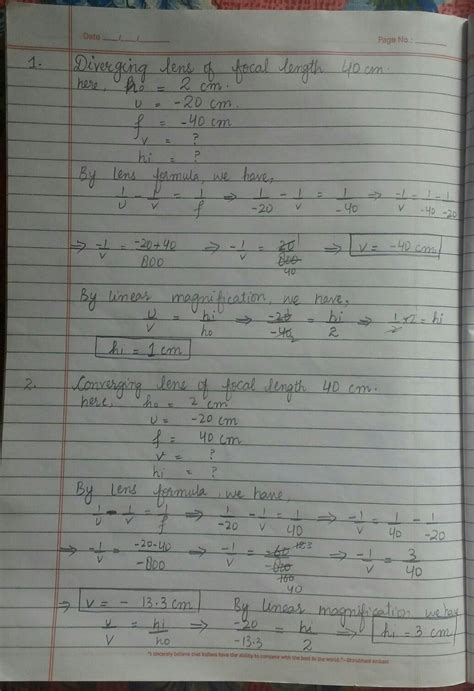 Date __/__/__ Page No.: ______
1. Diverging lens of focal length 40 cm.
here, ho = 2 cm.
u = -20 cm.
f = -40 cm
v = ?
hi = ?
By lens formula, we have,
1/u - 1/v = 1/f ⇒ 1/-20 - 1/v = 1/-40 ⇒ -1/v = 1/-40 - 1/-20
⇒ -1/v = -20+40/800 ⇒ -1/v = 20 1/800 40 ⇒ v = -40 cm
By linear magnification, we have,
u/v = hi/ho ⇒ -20/-40 2 = hi/2 ⇒ 1/2 × 2 = hi
hi = 1 cm
2. Converging lens of focal length 40 cm.
here, ho = 2 cm
u = -20 cm
f = 40 cm
v = ?
hi = ?
By lens formula, we have,
1/u - 1/v = 1/f ⇒ 1/-20 - 1/v = 1/40 ⇒ -1/v = 1/40 - 1/-20
⇒ -1/v = -20-40/-800 ⇒ -1/v = ⇒ -1/v = 3/40
⇒ v = - 13.3 cm By linear magnification we have
u/v = hi/ho ⇒ -20/-13.3 = hi/2 ⇒ hi = 3 cm
"I sincerely believe that Indians have the ability to compete with the best in the world."